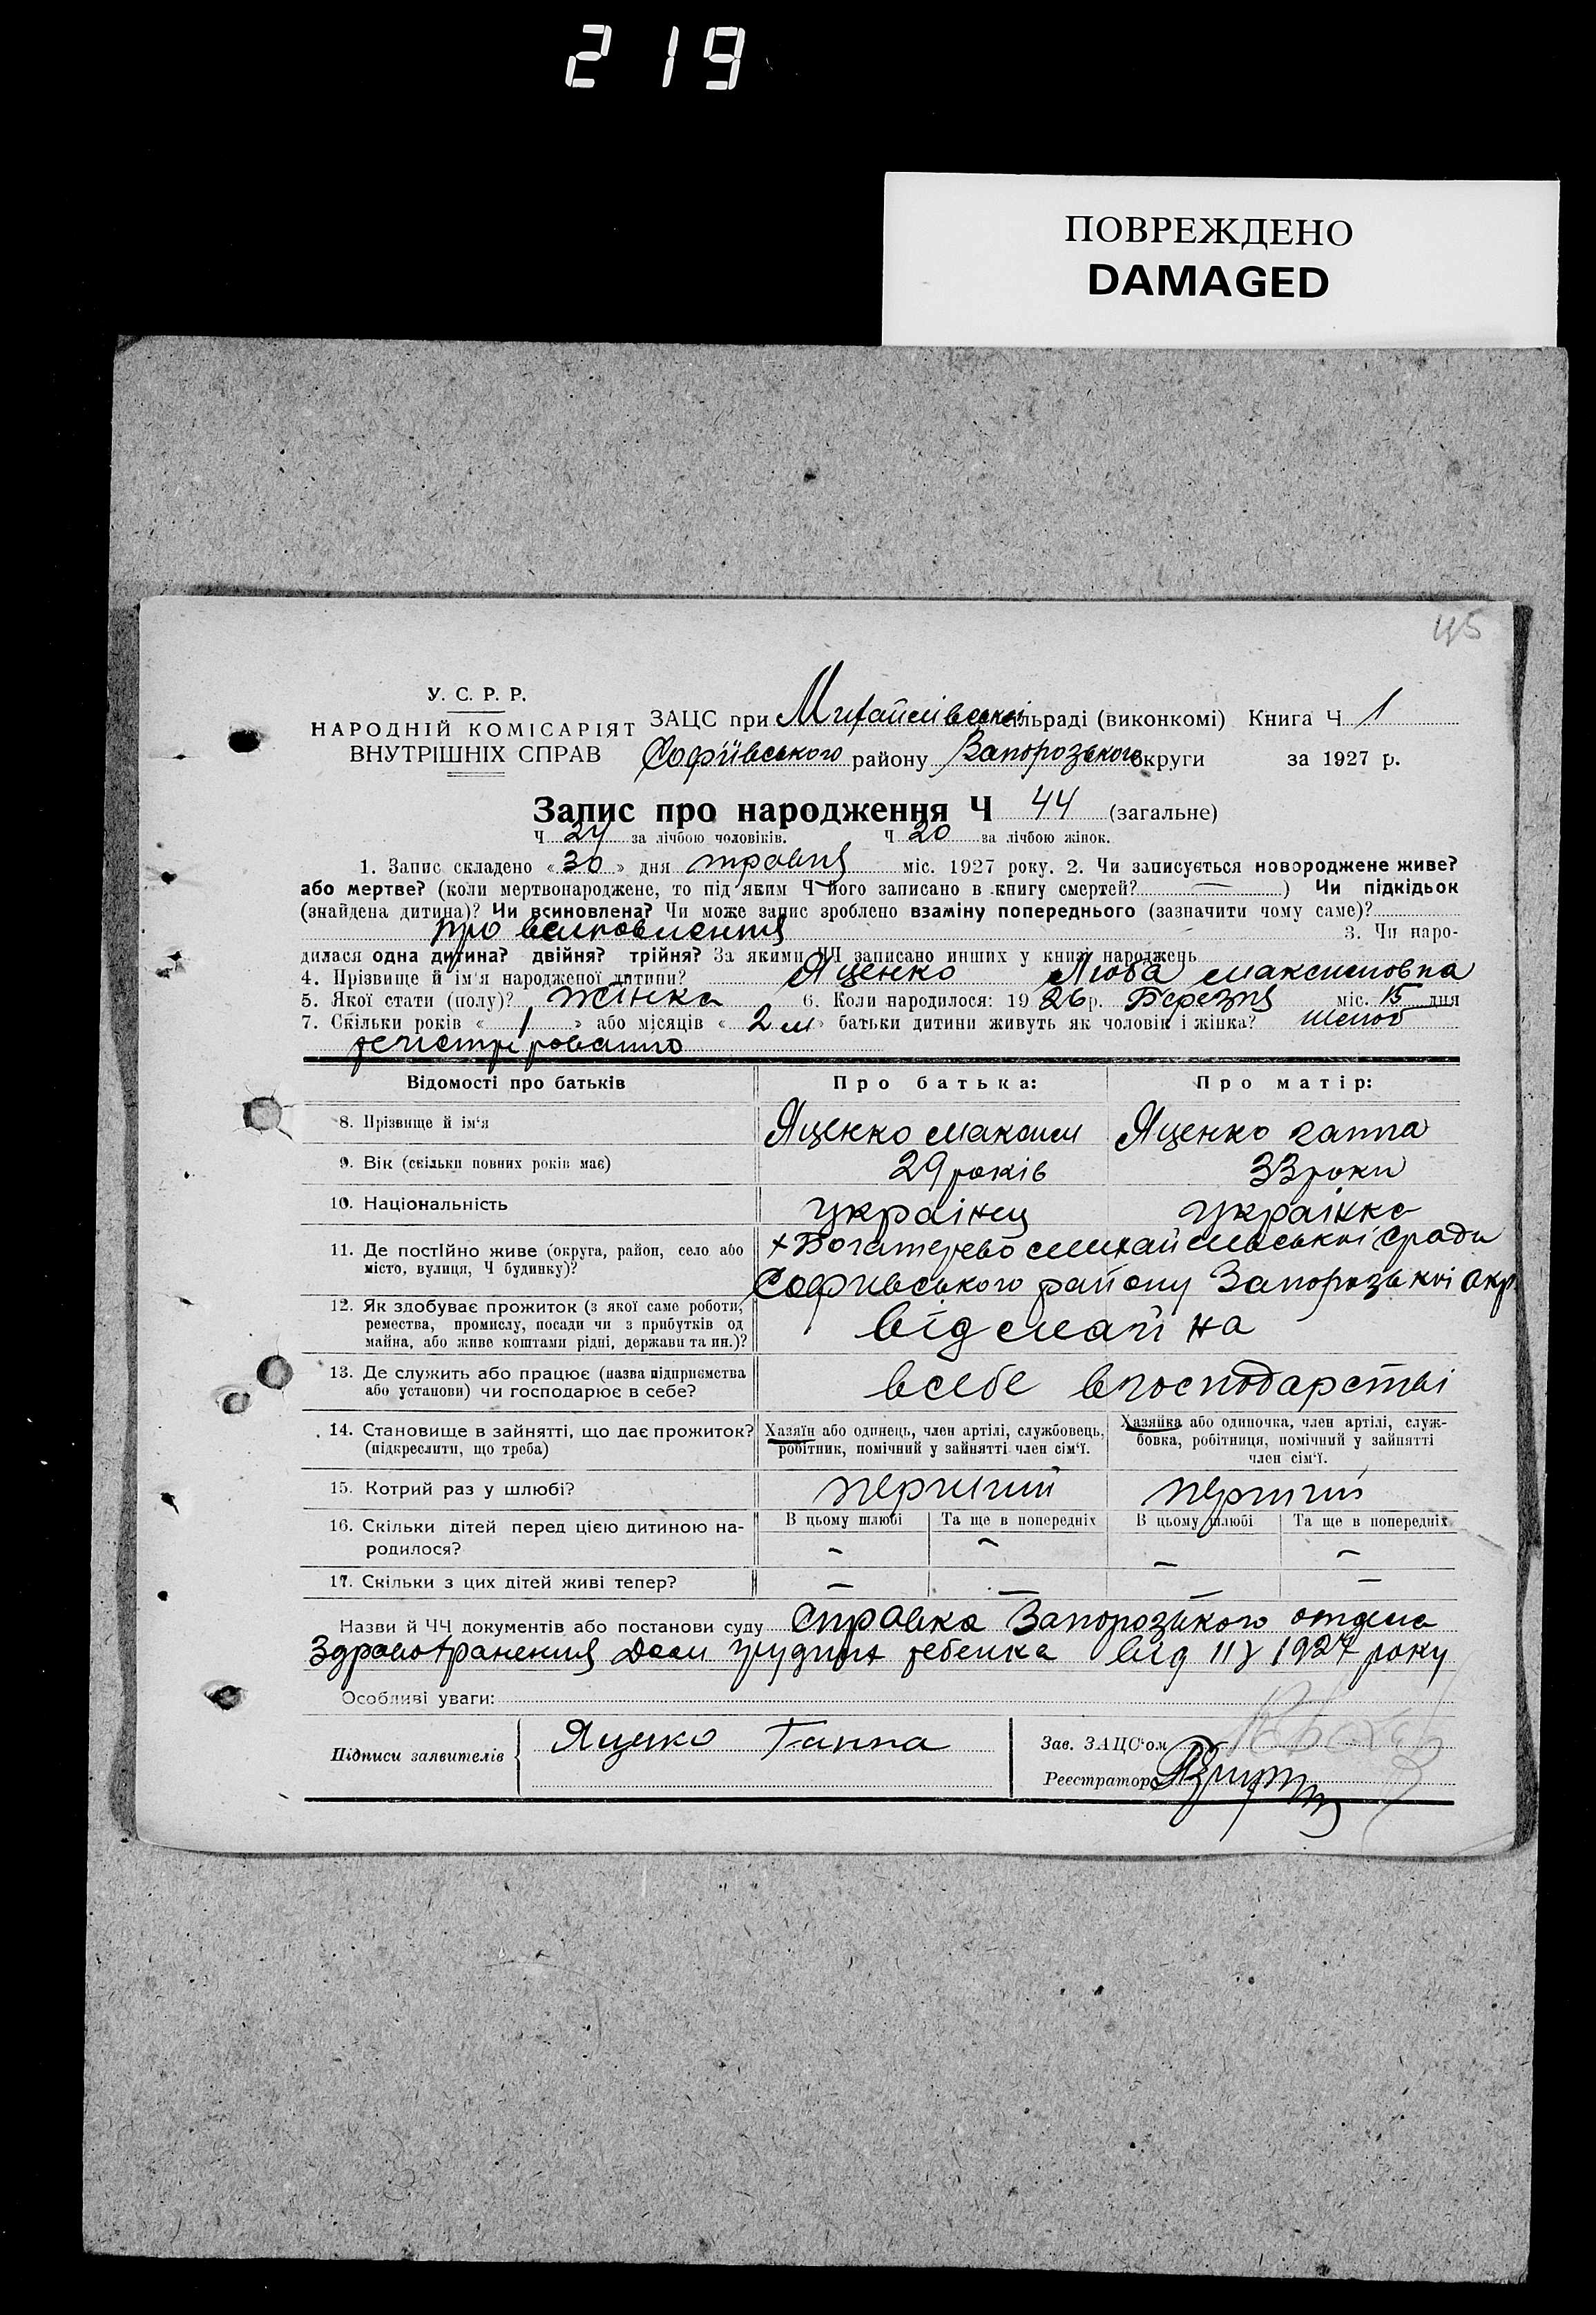 219
ПОВРЕЖДЕНО
DAMAGED
45
У. С. Р. Р.
НАРОДНІЙ КОМІСАРІЯТ
ВНУТРІШНІХ СПРАВ
ЗАЦС при Михайлівській сільраді (виконкомі) Книга Ч 1
Софіївського району Запорозького округи за 1927 р.
Запис про народження Ч 44 (загальне)
Ч 24 за лічбою чоловіків. Ч 20 за лічбою жінок.
1. Запис складено «30» дня травня міс. 1927 року. 2. Чи записується новороджене живе?
або мертве? (коли мертвонароджене, то під яким Ч його записано в книгу смертей? —) Чи підкідьок
(знайдена дитина)? Чи всиновлена? Чи може запис зроблено взаміну попереднього (зазначити чому саме)?
про всиновлення 3. Чи наро-
дилася одна дитина? двійня? трійня? За якими ЧЧ записано инших у книзі народжень
4. Прізвище й ім'я народженої дитини? Яценко Люба Максимовна
5. Якої стати (полу)? Жінка 6. Коли народилося: 1926 р. Березня міс. 15 дня
7. Скільки років «1» або місяців «2 м» батьки дитини живуть як чоловік і жінка? шлюб
Відомості про батьків
Про батька:
Про матір:
8. Прізвище й ім'я Яценко Максим Яценко Ганна
9. Вік (скільки повних років має) 29 років 33 роки
10. Національність українец українка
11. Де постійно живе (округа, район, село або
місто, вулиця, Ч будинку)?
Софиівського району Запорозької окр.
12. Як здобуває прожиток (з якої саме роботи,
ремества, промислу, посади чи з прибутків од
майна, або живе коштами рідні, держави та ин.)?
від майна
13. Де служить або працює (назва підприємства
або установи) чи господарює в себе?
в себе в господарстві
14. Становище в зайнятті, що дає прожиток?
(підкреслити, що треба)
Хазяїн або одинець, член артілі, службовець,
робітник, помічний у зайнятті член сім'ї.
Хазяйка або одиночка, член артілі, служ-
бовка, робітниця, помічний у зайнятті
член сім'ї.
15. Котрий раз у шлюбі? перший перший
16. Скільки дітей перед цією дитиною на-
родилося?
В цьому шлюбі Та ще в попередніх В цьому шлюбі Та ще в попередніх
– – – –
17. Скільки з цих дітей живі тепер? – – – –
Назви й ЧЧ документів або постанови суду Справка Запорозького отдела
Здравохранения Дом грудних ребенка від 1927 року
Особливі уваги:
Підписи заявителів Яценко Ганна
Зав. ЗАЦС'ом
Реєстратор